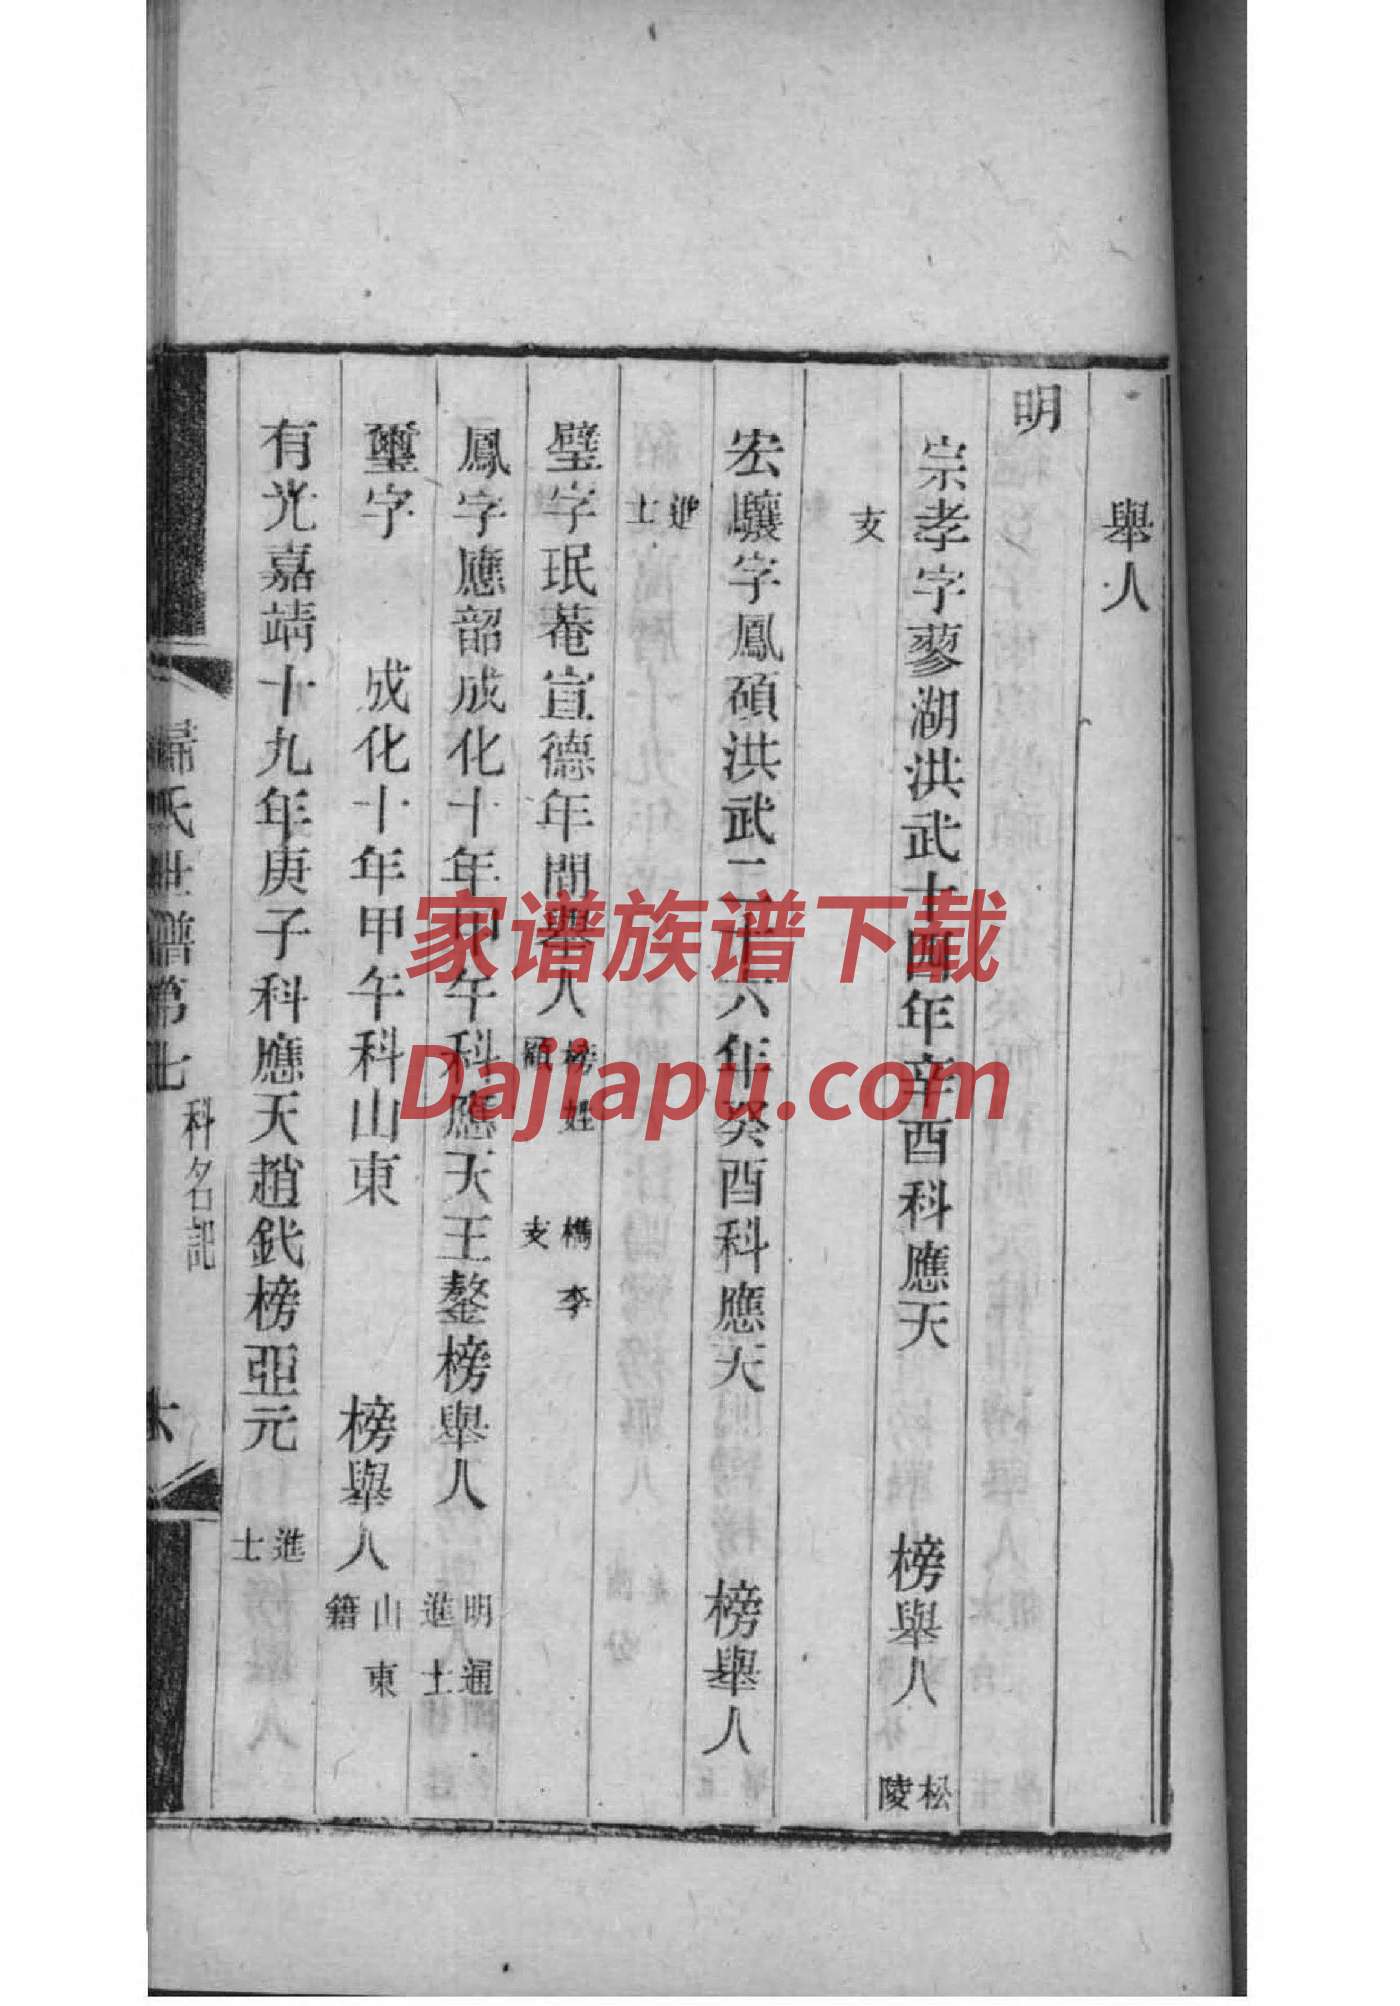 舉人
明
宗孝字蓼湖洪武十四年辛酉科應天 榜舉人松陵
支
宏驤字鳳碩洪武二十六年癸酉科應天 榜舉人
進士
璧字珉菴宣德年間舉人榜姓顧 檇李支
鳳字應韶成化十年甲午科應天王鏊榜舉人明通進士
璽字 成化十年甲午科山東 榜舉人山東籍
有光嘉靖十九年庚子科應天趙釴榜亞元進士
歸氏世譜第七 科名記 六
家谱族谱下载
Dajiapu.com